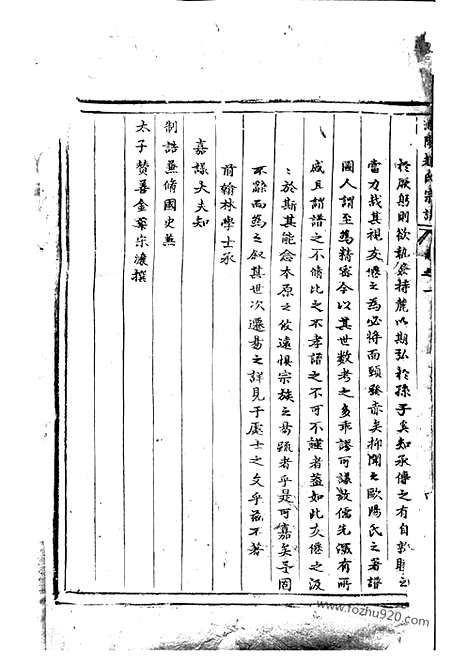 於厥躬則欲執豢持麓以期弘於孫子矣知承傳之有自
當力哉其視友倦之為必將面頸發赤矣抑聞之歐陽氏之著譜
國人謂至為精密今以其世數考之多乖謬可議故儒先深有所
戚且謂譜之不脩比之不孝譜之不可不謹者蓋如此友倦之汲
汲於斯其能念本原之攸遠懼宗族之易疏者乎是可嘉矣予固
不辭而為之叙其世次遷易之詳見于處士之文乎茲不著
前翰林學士承
嘉議大夫知
制誥兼脩國史兼
太子贊善金華宋濂撰
氏宗譜
www.fozhu920.com